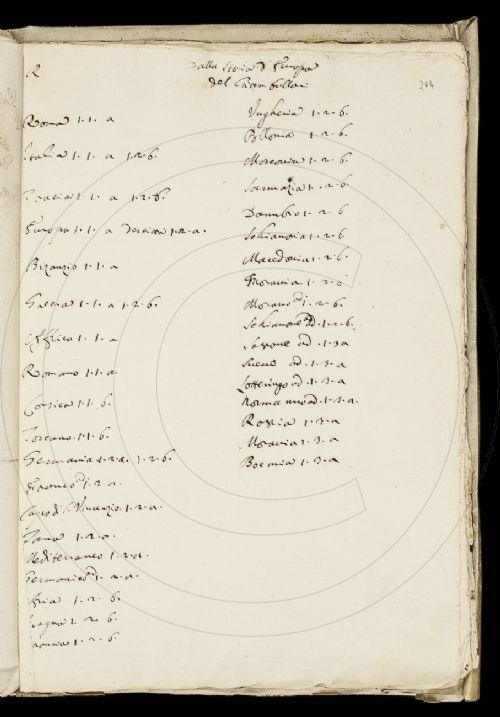 R
Dalla Storia d'Europa
del Giambullari
204
Roma 1. 1. a
Italia 1. 1. a 1. 2. b.
Tracia 1. 1. a 1. 2. b.
Europa 1. 1. a 1. 2. a.
Bizanzio 1. 1. a
Grecia 1. 1. a 1. 2. b.
Affrica 1. 1. a
Romano 1. 1. a
Corsica 1. 1. b.
Toscano 1. 1. b.
Germania 1. 2. a. 1. 2. b.
1. 2. a.
Capo di S. Vincenzio 1. 2. a.
Tana 1. 2. a.
Mediterraneo 1. 2. a.
Germanico 1. 2. a.
1. 2. b.
1. 2. b.
1. 2. b.
Ungheria 1. 2. b.
Pollonia 1. 2. b.
Moscovia 1. 2. b.
Sarmazia 1. 2. b
Danubio 1. 2. b
Schiavonia 1. 2. b.
Macedonia 1. 2. b.
Moravia 1. 2. b
1. 2. b.
Schiavone ad. 1. 2. b.
Sassone ad. 1. 3. a
Suevo ad. 1. 3. a
Lotteringo ad. 1. 3. a
Normanno ad. 1. 3. a.
Rossia 1. 3. a
Moravia 1. 3. a
Boemia 1. 3. a